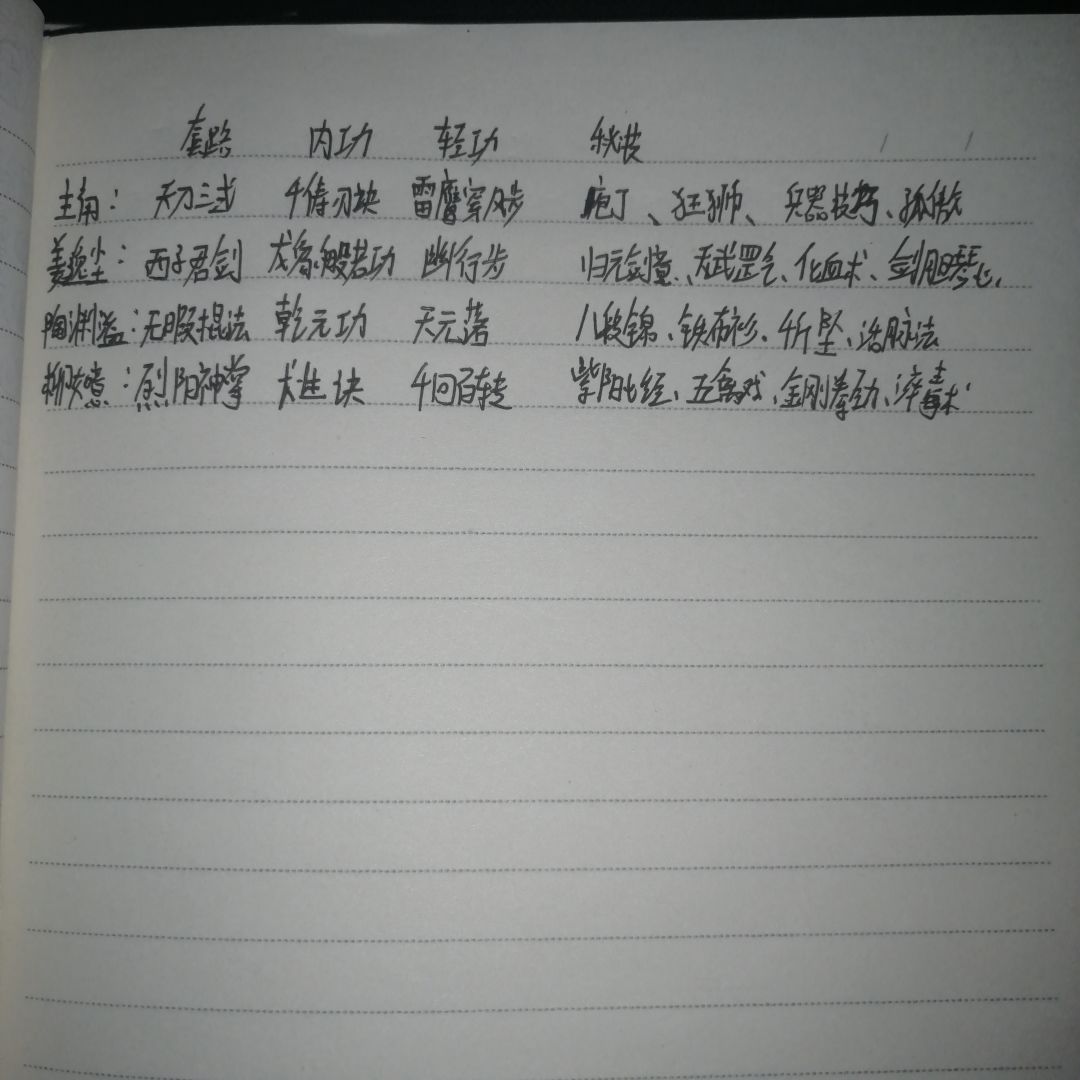 套路 内功 轻功 秘技
主角： 天刀三式 千俦刃诀 雷鹰穿风步 庖丁、狂狮、兵器技巧、孤傲
姜逸尘： 西子君剑 龙象般若功 幽行步 归元剑憶、天武罡气、化血术、剑胆琴心、
陶渊溢：无暇棍法 乾元功 天元落 八段锦、铁布衫、千斤坠、活脉法
柳 ：烈阳神掌 诀 千回百转 紫阳心经、五禽戏、金刚拳劲、淬毒术